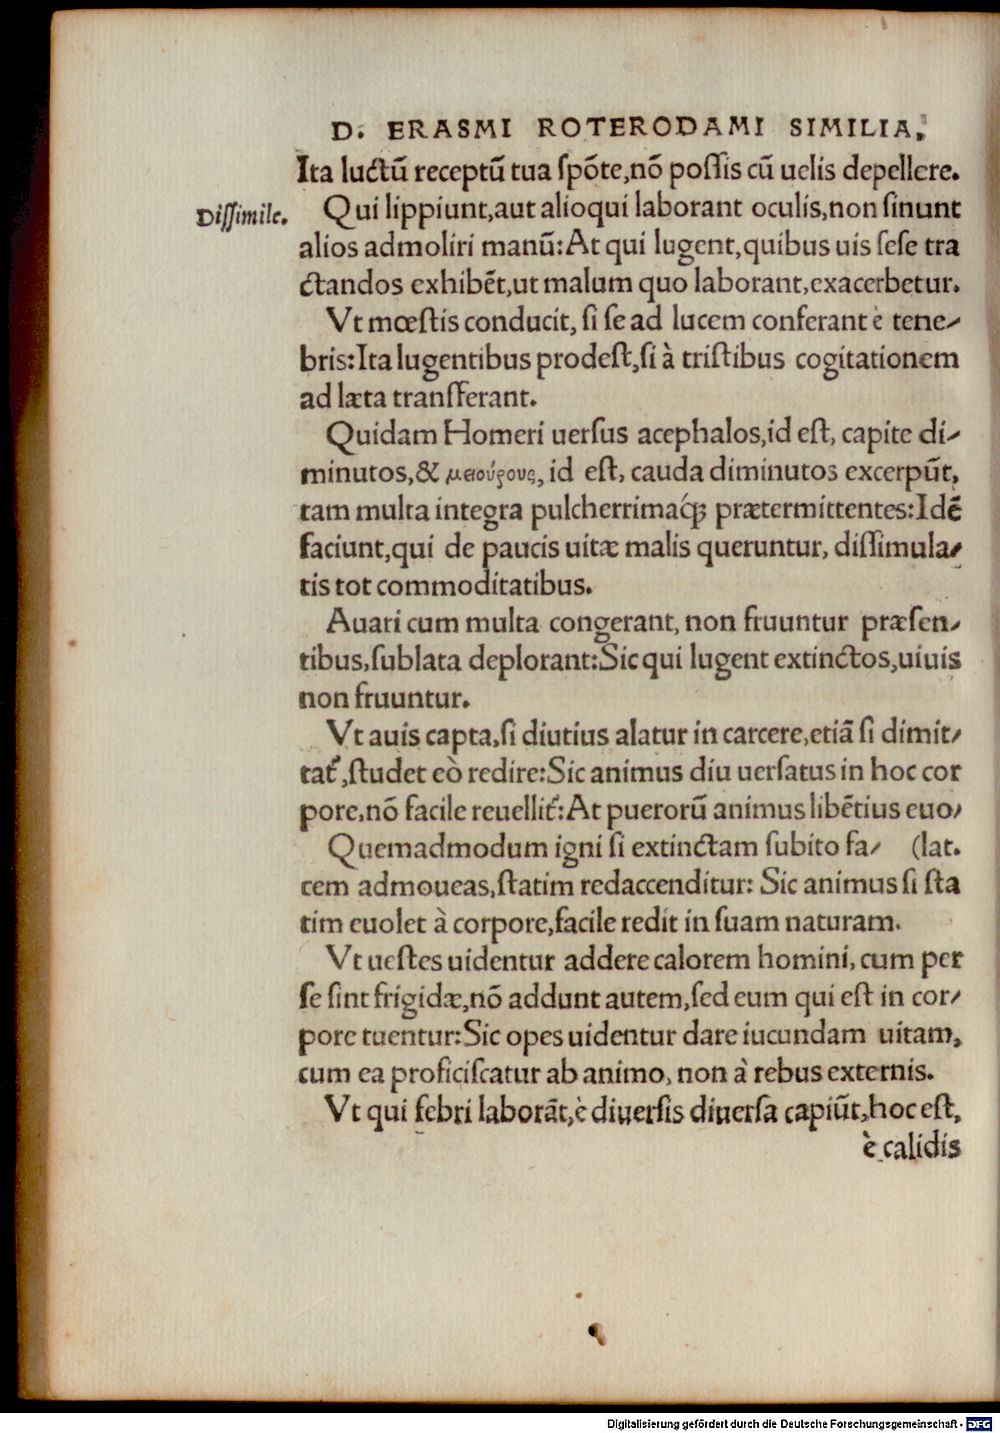 D. ERASMI ROTERODAMI SIMILIA.
Ita luctū receptū tua ſpōte,nō poſſis cū uelis depellere.
Diſſimile.
Qui lippiunt,aut alioqui laborant oculis,non ſinunt
alios admoliri manū:At qui lugent,quibus uis ſeſe tra
ctandos exhibēt,ut malum quo laborant,exacerbetur.
Vt mœſtis conducit, ſi ſe ad lucem conferant è tene/
bris:Ita lugentibus prodeſt,ſi à triſtibus cogitationem
ad læta transferant.
Quidam Homeri uerſus acephalos,id eſt, capite di/
minutos,& μειούρους, id eſt, cauda diminutos excerpūt,
tam multa integra pulcherrimaq́ꝫ prætermittentes:Idē
faciunt,qui de paucis uitæ malis queruntur, diſſimula/
tis tot commoditatibus.
Auari cum multa congerant, non fruuntur præſen/
tibus,ſublata deplorant:Sic qui lugent extinctos,uiuis
non fruuntur.
Vt auis capta,ſi diutius alatur in carcere,etiā ſi dimit/
tat᷑,ſtudet eò redire:Sic animus diu uerſatus in hoc cor
pore,nō facile reuellit᷑:At puerorū animus libētius euo/
Quemadmodum igni ſi extinctam ſubito fa/ (lat.
cem admoueas,ſtatim redaccenditur: Sic animus ſi ſta
tim euolet à corpore,facile redit in ſuam naturam.
Vt ueſtes uidentur addere calorem homini, cum per
ſe ſint frigidæ,nō addunt autem,ſed eum qui eſt in cor/
pore tuentur:Sic opes uidentur dare iucundam uitam,
cum ea proficiſcatur ab animo, non à rebus externis.
Vt qui febri laborāt,è diuerſis diuerſa capiūt,hoc eſt,
è calidis
Digitalisierung gefördert durch die Deutsche Forschungsgemeinschaft - DFG